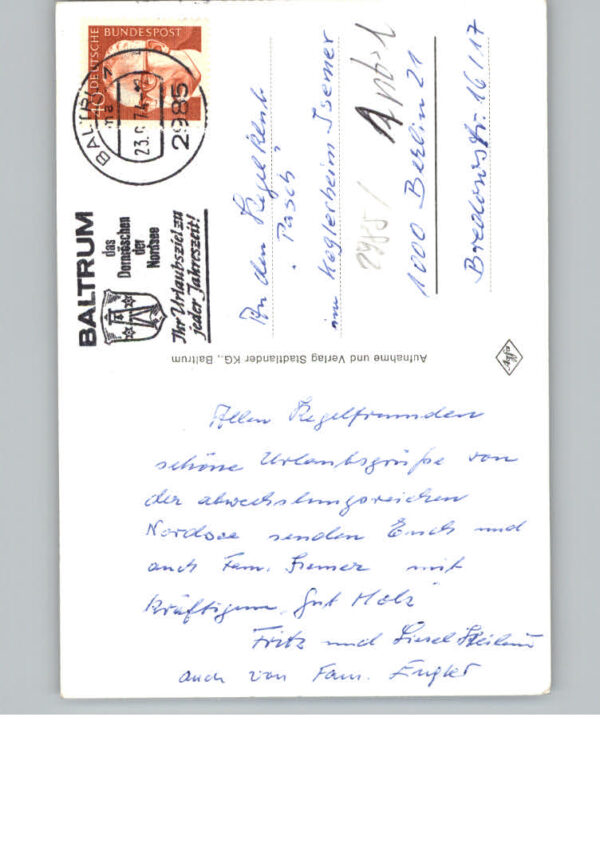 DEUTSCHE BUNDESPOST
40
BALTRUM
23.
2985
BALTRUM
das
Dornröschen
der
Nordsee
Ihr Urlaubsziel zu
jeder Jahreszeit!
An den Kegelklub
"Pasch"
im Keglerheim Isemer
2985 /
1000 Berlin 21
Bredowstr. 16/17
Aufnahme und Verlag Stadtlander KG., Baltrum
Agfa
Allen Kegelfreunden
schöne Urlaubsgrüße von
der abwechslungsreichen
Nordsee senden Euch und
auch Fam. Isemer mit
kräftigem "Gut Holz"
Fritz und Liesel
auch von Fam. Engler